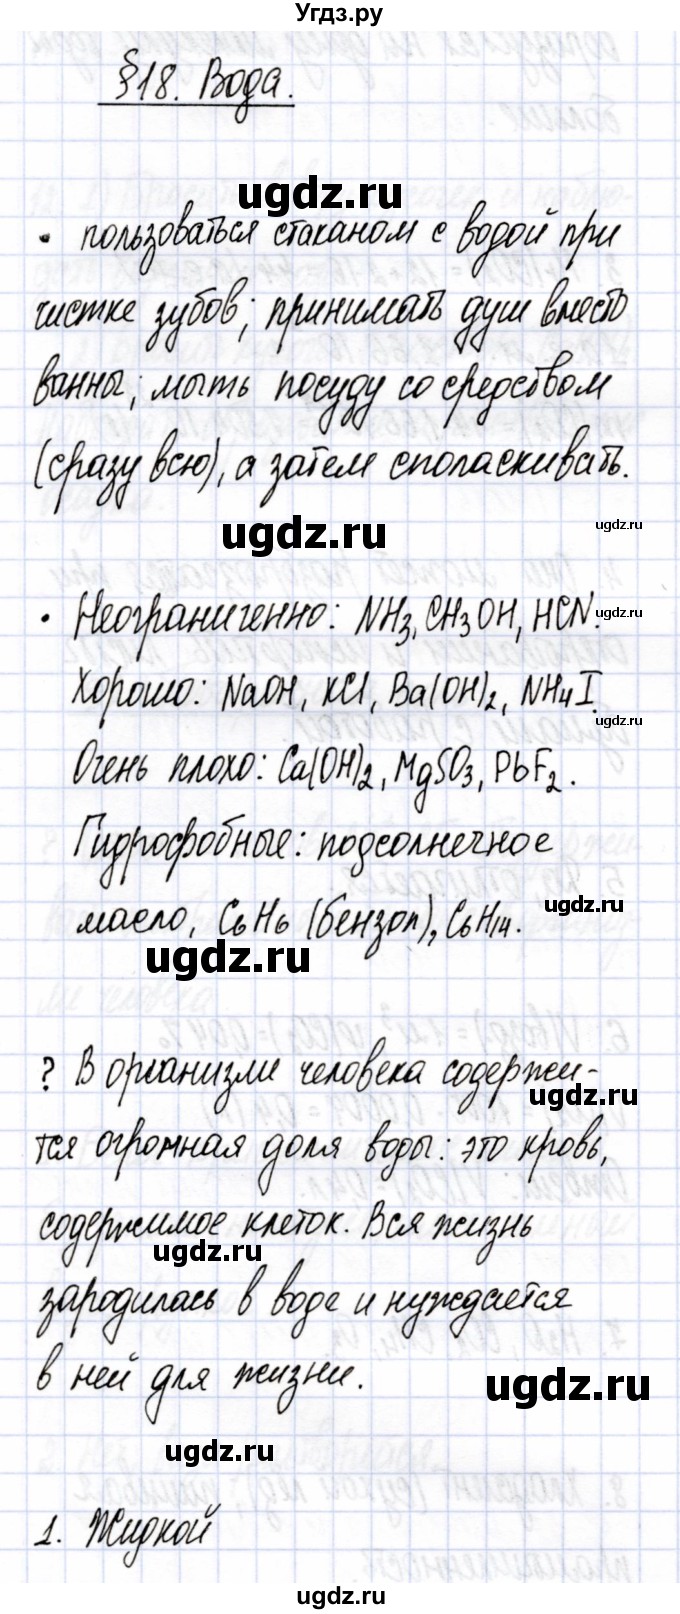 Угдз.ру
§18. Вода.
ugdz.ru
• пользоваться стаканом с водой при
чистке зубов; принимать душ вместо
ванны; мыть посуду со средством
(сразу всю), а затем споласкивать.
ugdz.ru
ugdz.ru
• Неограниченно: NH3, CH3OH, HCN.
ugdz.ru
Хорошо: NaOH, KCl, Ba(OH)2, NH4I.
ugdz.ru
Очень плохо: Ca(OH)2, MgSO3, PbF2.
Гидрофобные: подсолнечное
ugdz.ru
масло, C6H6 (бензол), C6H14.
ugdz.ru
? В организме человека содержи-
ugdz.ru
тся огромная доля воды: это кровь,
содержимое клеток. Вся жизнь
ugdz.ru
зародилась в воде и нуждается
в ней для жизни.
ugdz.ru
ugdz.ru
1. Жидкой
ugdz.ru